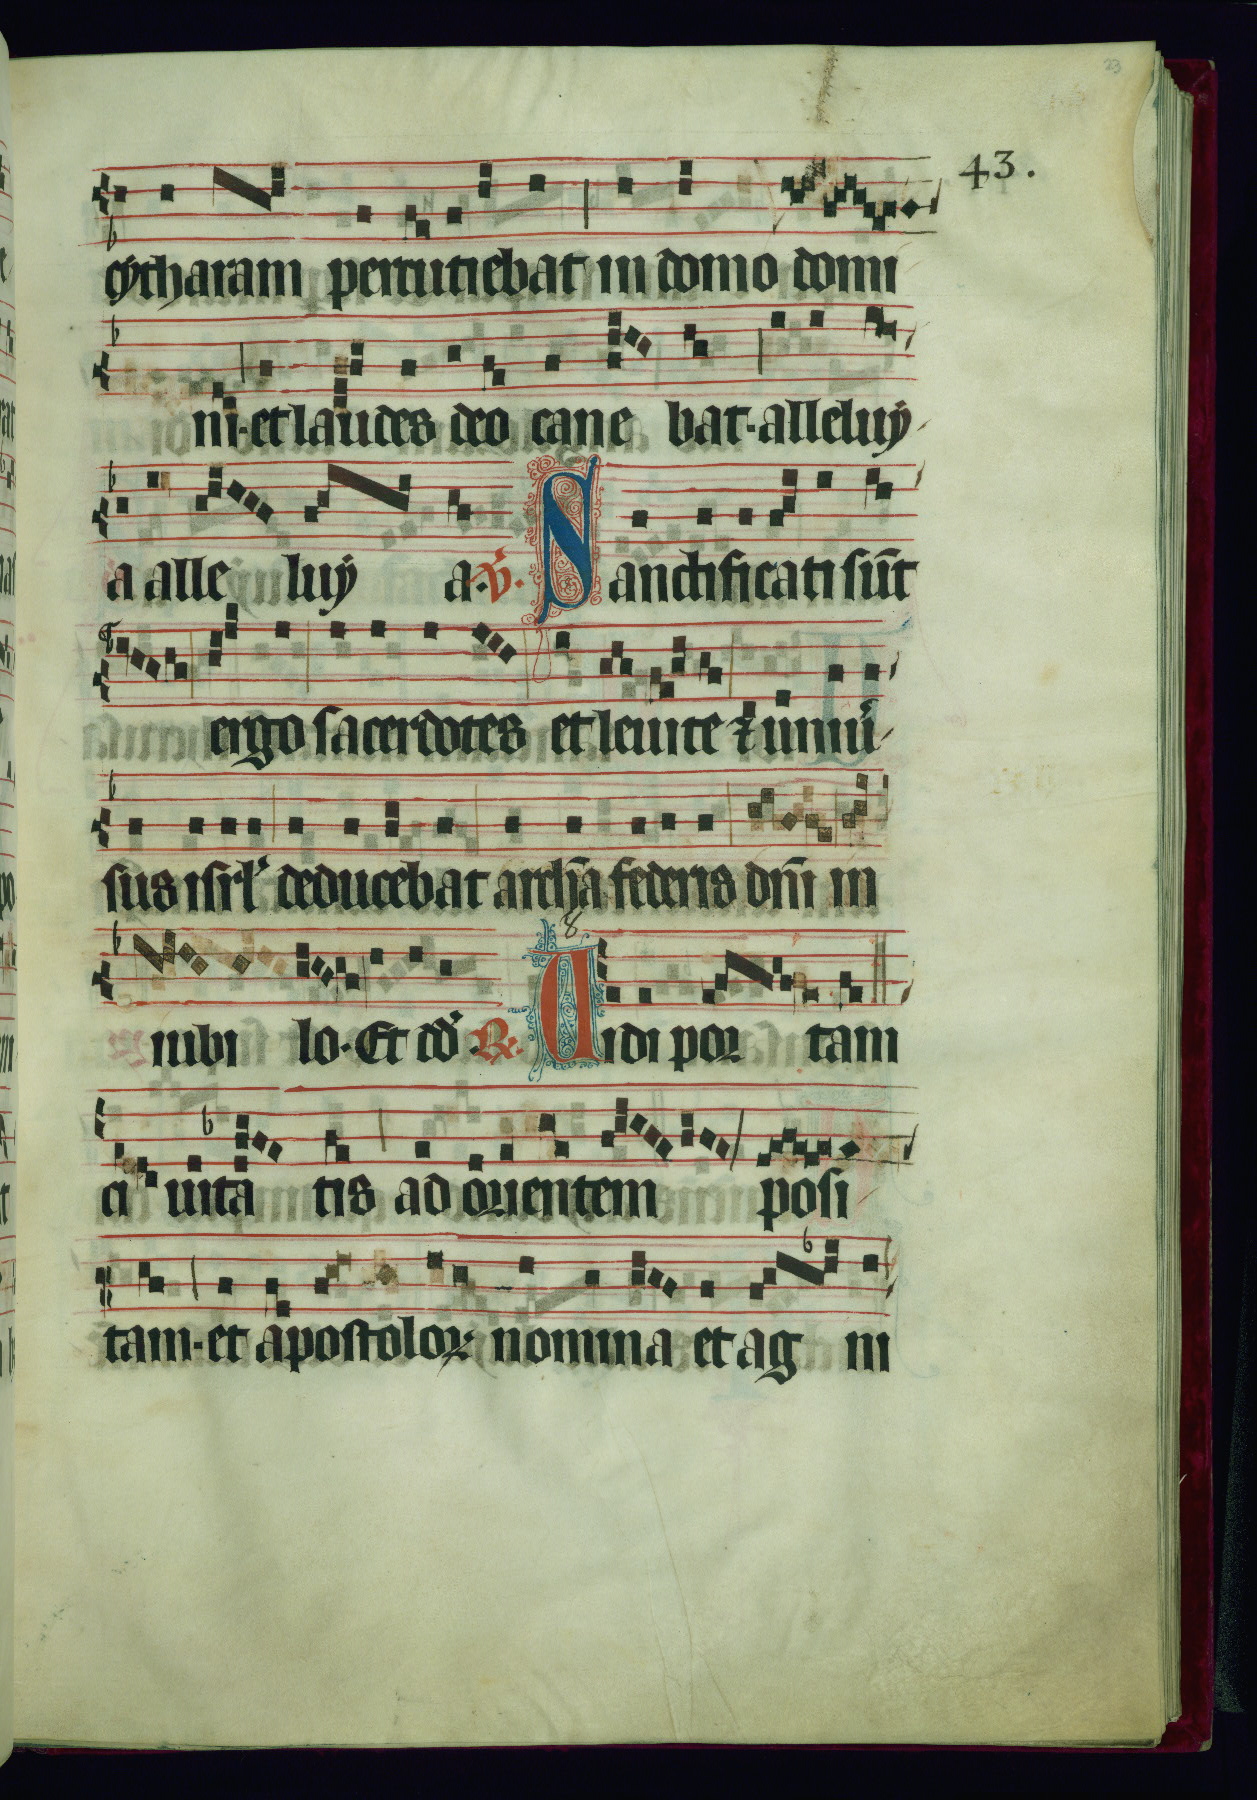 23
43.
cytharam percutiebat in domo domi
ni·et laudes deo cane bat·alleluy
a alle luy a·v̄. Sanctificati sūt
ergo sacerdotes et leuite ⁊ uniuͥ
sus isrl̓ deducebat archā federis dn̄i in
8
nibi lo·Et dō ℟. Uidi poꝛ tam
ci uita tis ad oꝛientem posi
tam·et apostoloꝝ nomina et ag ni